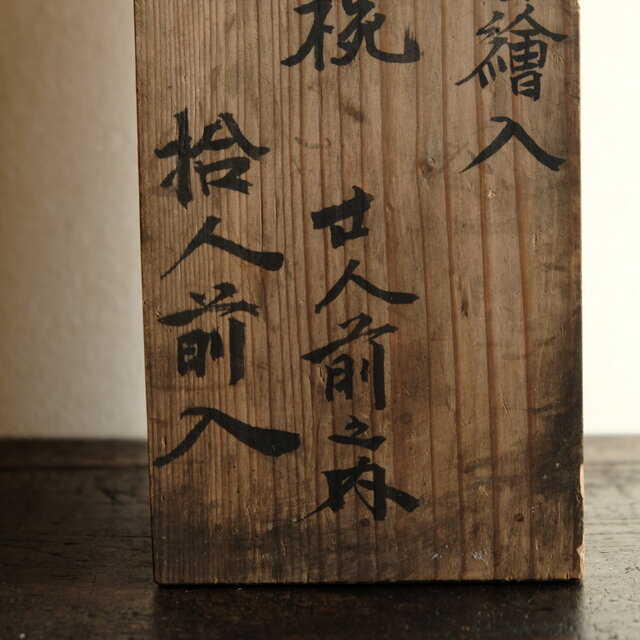 繪入
椀
廿人前之内
拾人前入